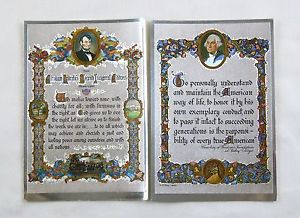 Abraham Lincoln's Second Inaugural Address
With malice toward none, with
charity for all; with firmness in
the right as God gives us to see
the right let us strive on to finish
the work we are in... to do all which
may achieve and cherish a just and
lasting peace among ourselves and with
all nations
To personally understand
and maintain the American
way of life, to honor it by his
own exemplary conduct, and
to pass it intact to succeeding
generations is the responsi-
bility of every true American"